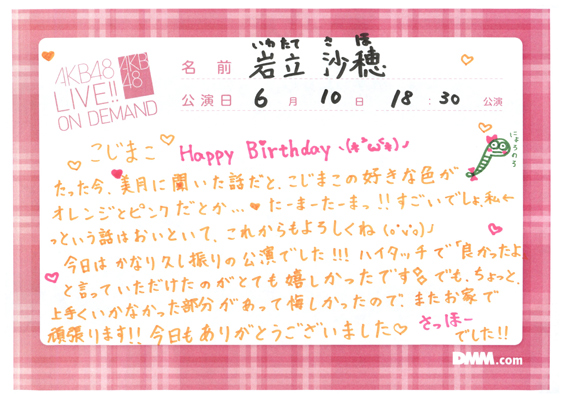 AKB48
LIVE!!
ON DEMAND
AKB
48
いわたて さほ
名前 岩立 沙穂
公演日 6月 10日 18:30 公演
こじまこ Happy Birthday ヽ(*°ω°*)ノ
にょろにょろ
たった今、美月に聞いた話だと、こじまこの好きな色が
オレンジとピンクだとか…♥ たーまーたーまっ!! すごいでしょ、私←
っという話はおいといて、これからもよろしくね (○'ν'○)」
今日はかなり久し振りの公演でした!!! ハイタッチで「良かったよ」
と言っていただけたのがとても嬉しかったです でも、ちょっと、
上手くいかなかった部分があって悔しかったので、またお家で
頑張ります!! 今日もありがとうございました♡ さっほー
でした!!
DMM.com